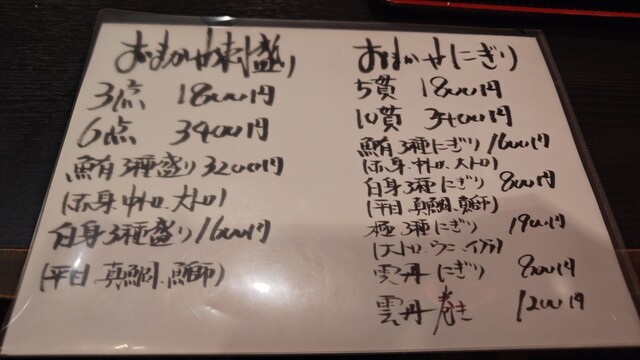 おまかせ刺盛り
3点 1800円
6点 3400円
鮪3種盛り 3200円
(赤身.中トロ.大トロ)
白身3種盛り 1600円
(平目.真鯛.鰤)
おまかせにぎり
5貫 1800円
10貫 3400円
鮪3種にぎり 1600円
(赤身.中トロ.大トロ)
白身3種にぎり 800円
(平目.真鯛.真鰤)
極3種にぎり 1900円
(大トロ.ウニ.イクラ)
雲丹にぎり 800円
雲丹巻き 1200円